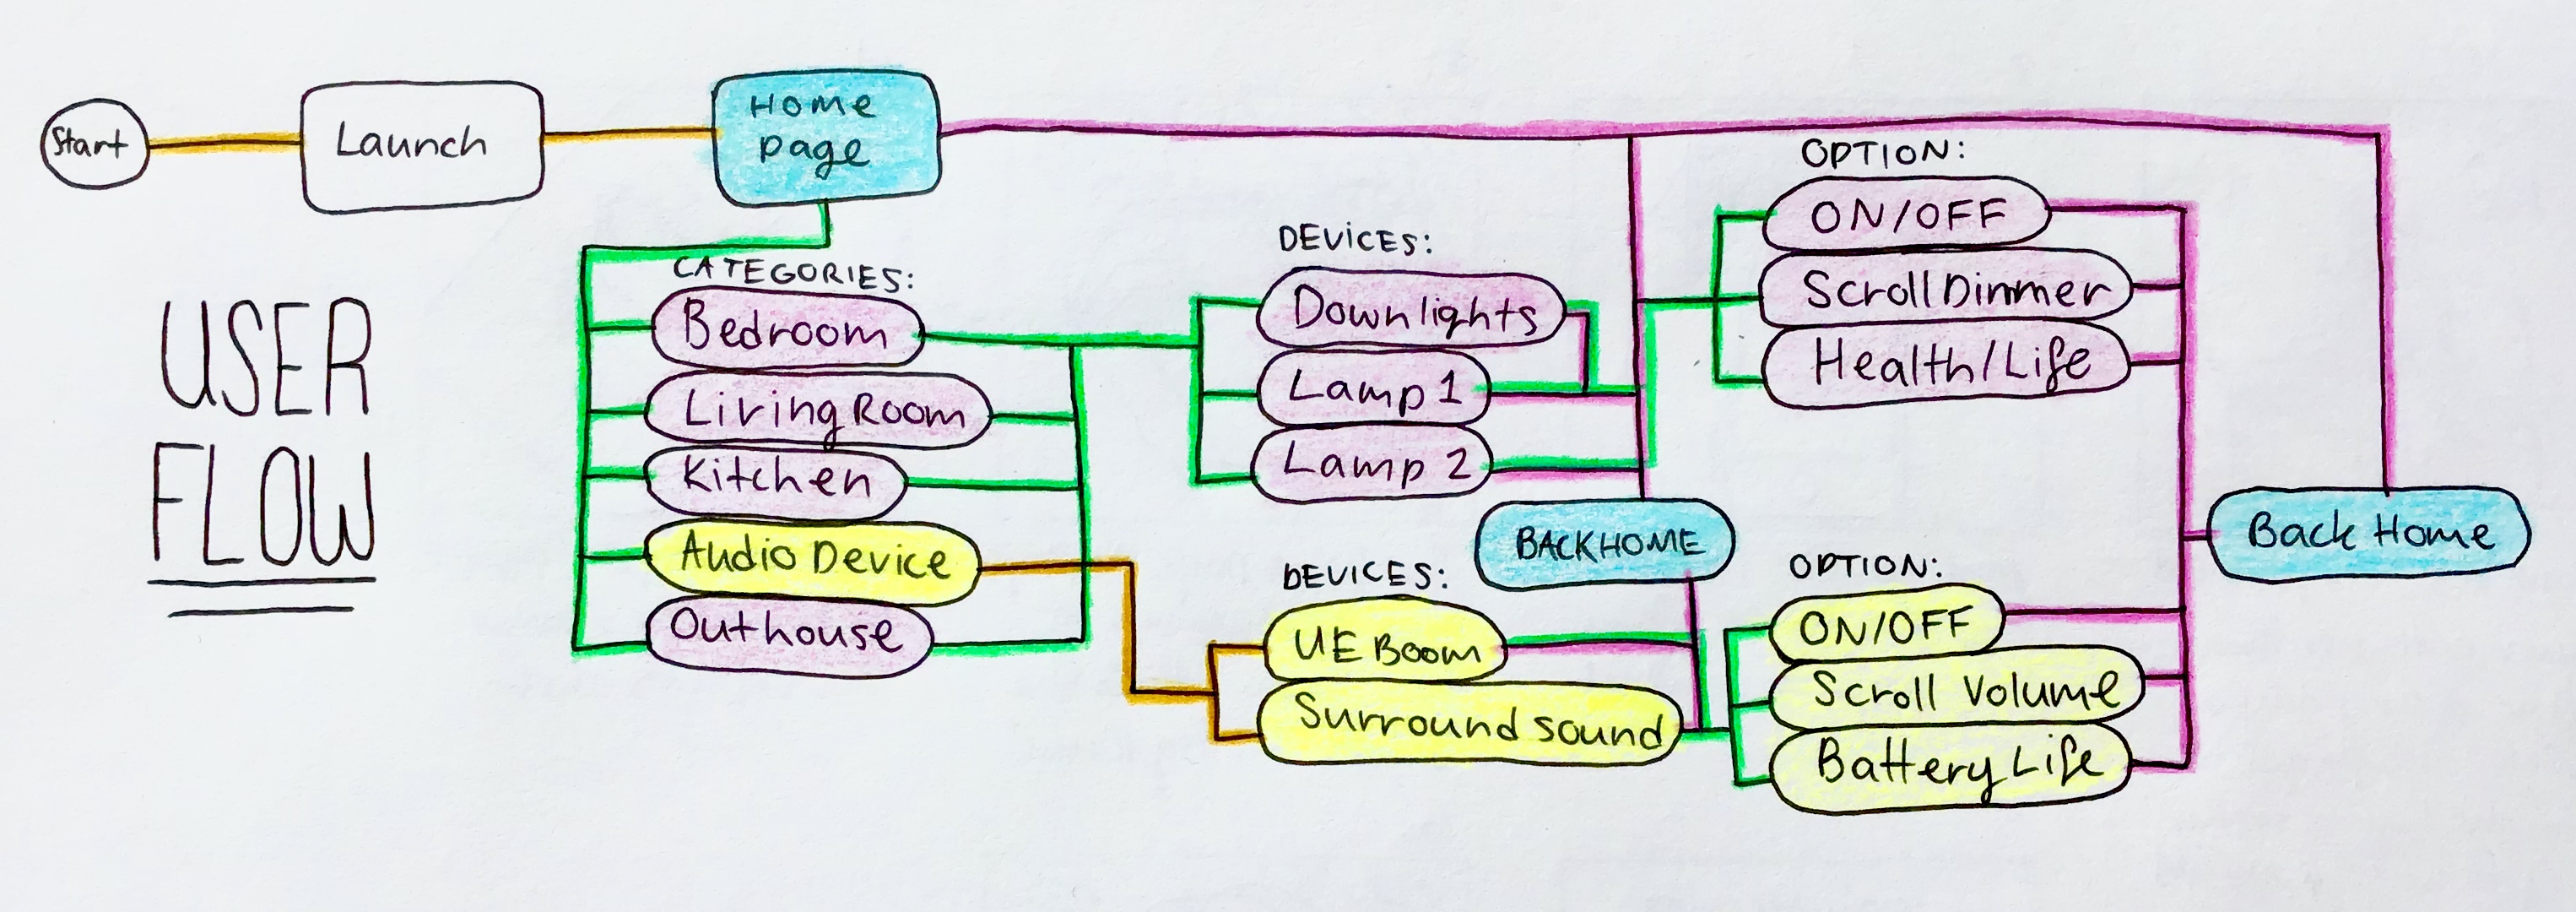 Start
Launch
Home
page
USER
FLOW
CATEGORIES:
Bedroom
Living Room
Kitchen
Audio Device
Outhouse
DEVICES:
Downlights
Lamp 1
Lamp 2
BACKHOME
DEVICES:
UE Boom
Surround sound
OPTION:
ON/OFF
Scroll Dimmer
Health/Life
OPTION:
ON/OFF
Scroll Volume
Battery Life
Back Home